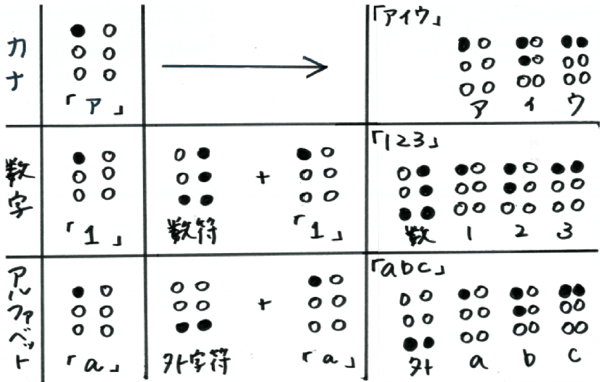 カナ
「ア」
「アイウ」
ア イ ウ
数字
「1」
数符 + 「1」
「123」
数 1 2 3
アルファベット
「a」
外字符 + 「a」
「abc」
外 a b c